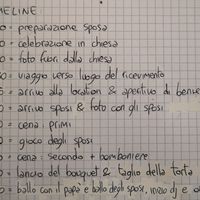 MELINE
0 = preparazione sposa
0 = celebrazione in chiesa
0 = foto fuori dalla chiesa
30 = viaggio verso luogo del ricevimento
5 = arrivo alla location & aperitivo di benve
0 = arrivo sposi & foto con gli sposi
0 = cena: primi
0 = gioco degli sposi
0 = cena: secondo + bomboniere
0 = lancio del bouquet & taglio della torta
0 = ballo con il papà e ballo degli sposi, inizio dj e